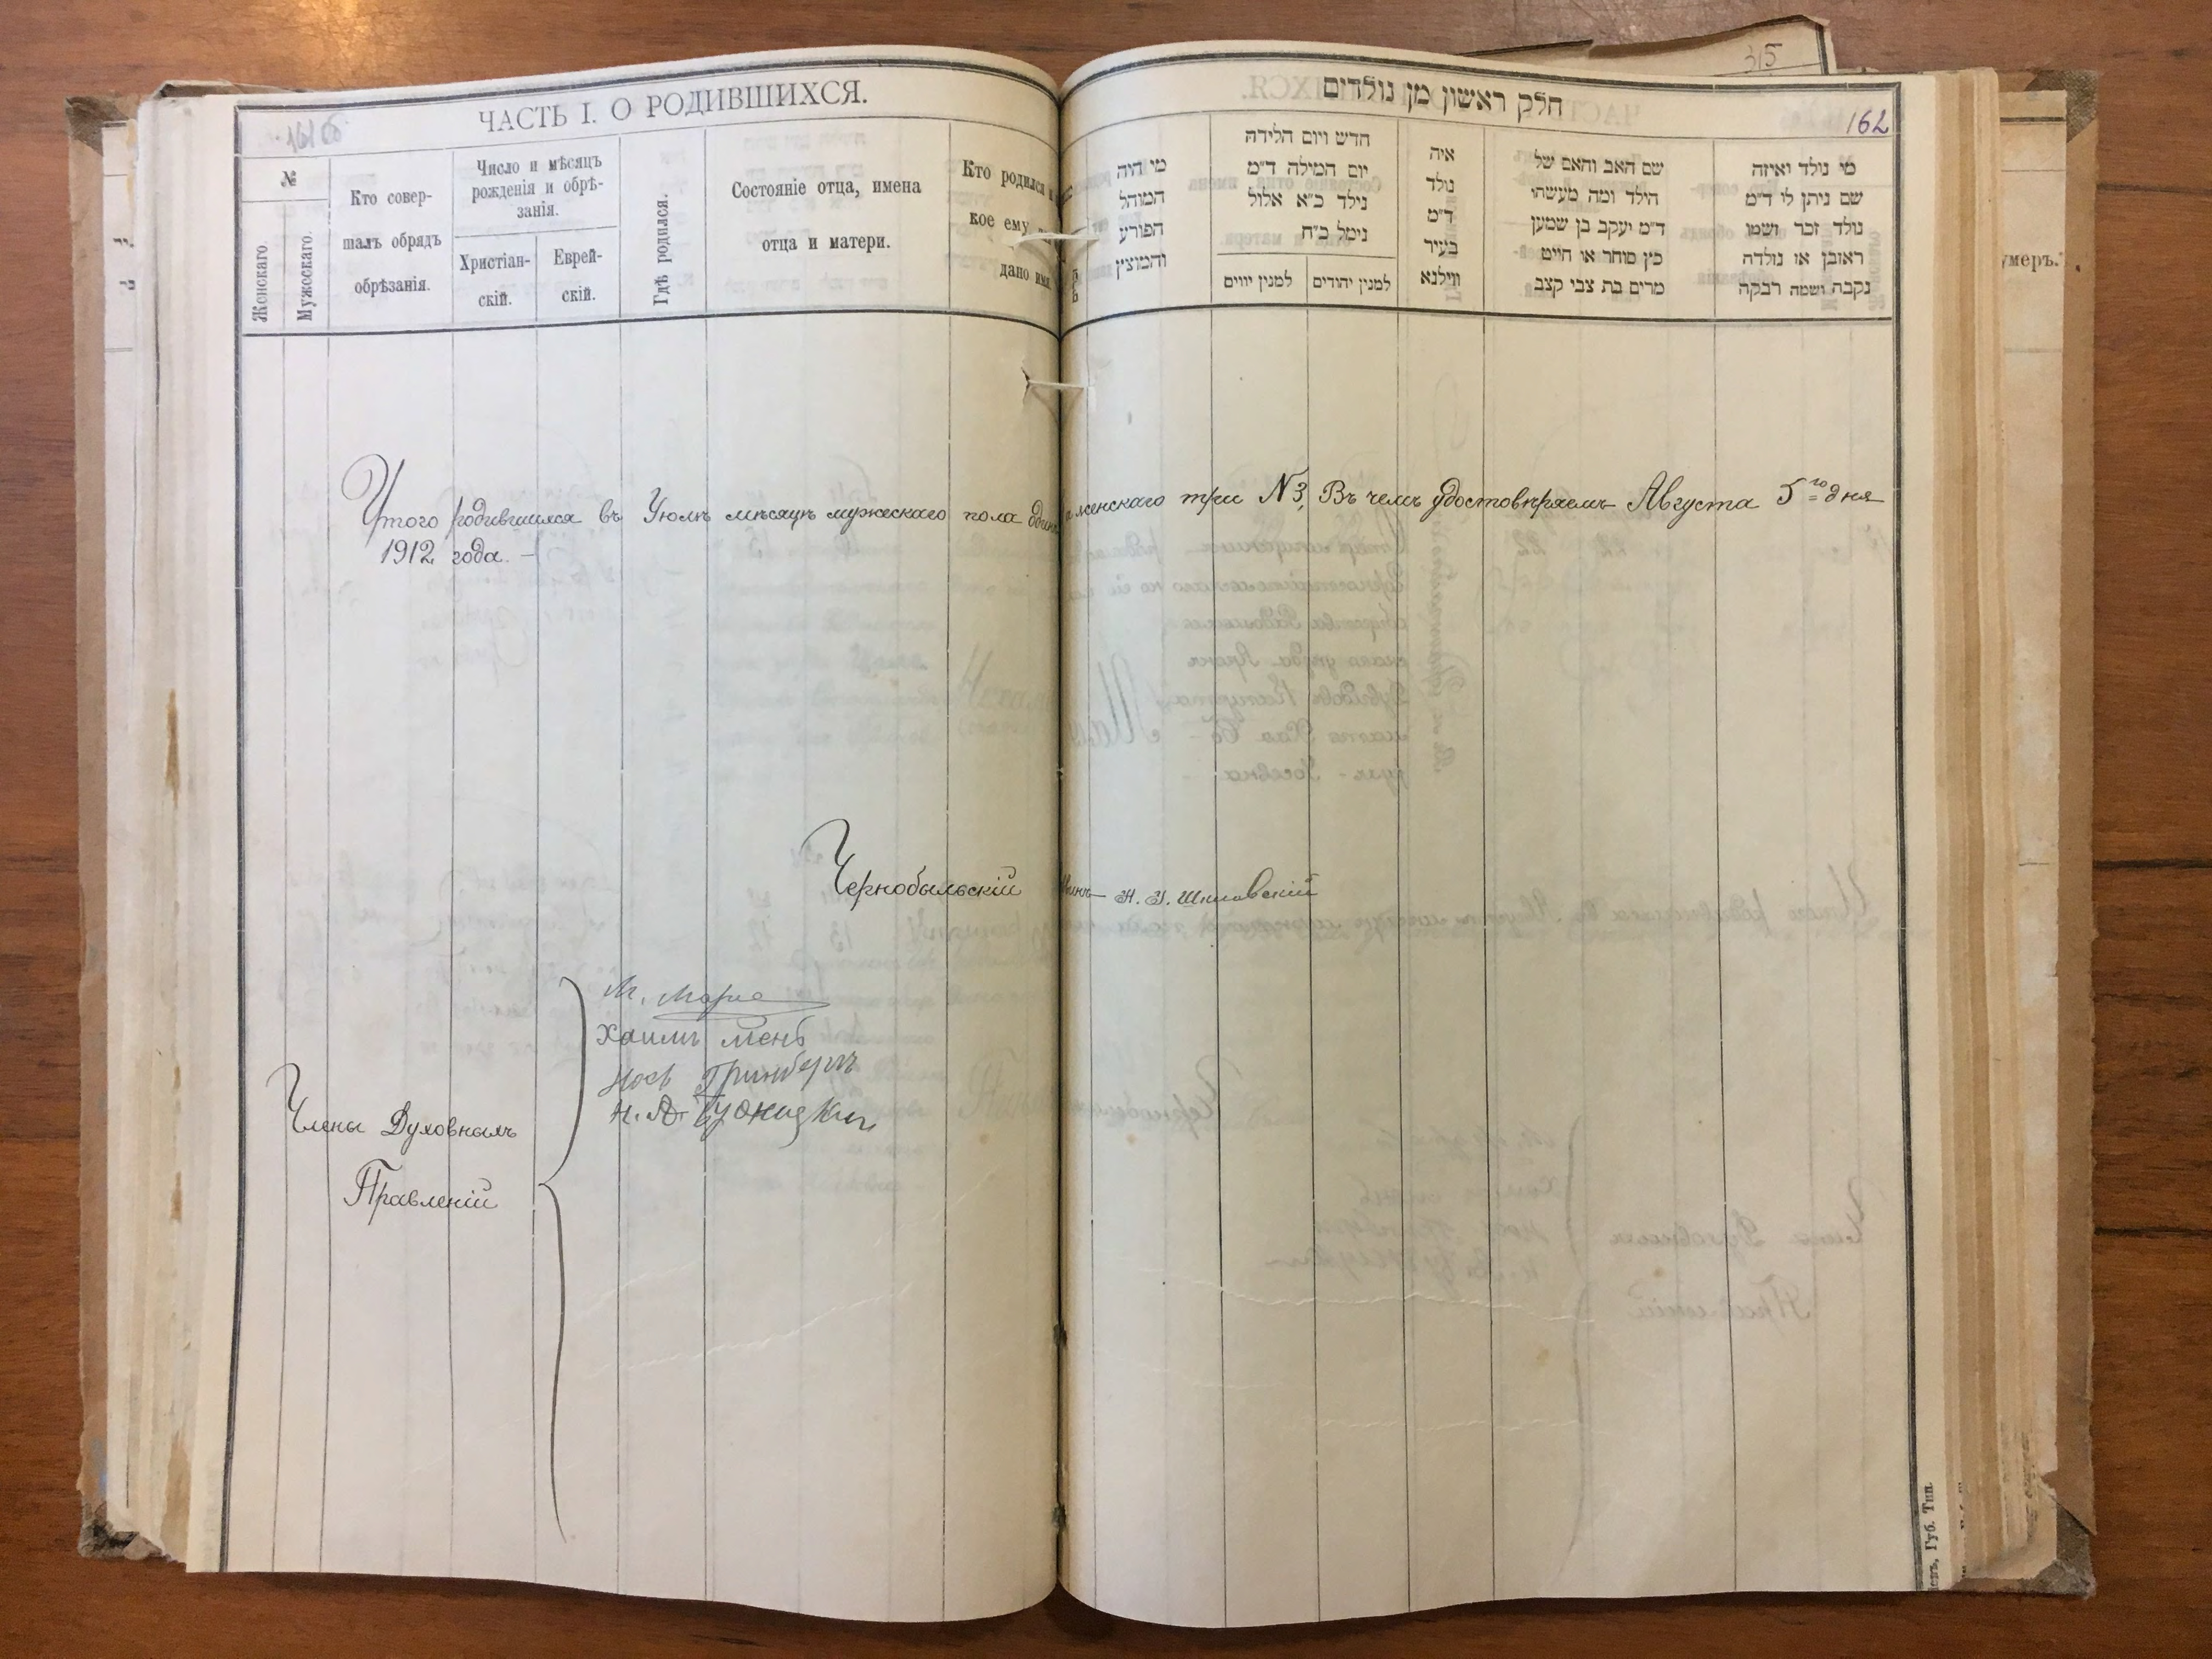 ЧАСТЬ I. О РОДИВШИХСЯ.
№
Женскаго.
Мужескаго.
Кто совер-
шалъ обрядъ
обрѣзанія.
Число и мѣсяцъ
рожденія и обрѣ-
занія.
Христіан-
скій.
Еврей-
скій.
Гдѣ родился.
Состояніе отца, имена
отца и матери.
Кто родился и
кое ему
дано имя.
חלק ראשון מן נולדים
162
315
מי היה
המוהל
הפורע
והמוצץ
חדש ויום הלידה
יום המילה ד״מ
נילד כ״א אלול
נימל כ״ח
למנין יווים
למנין יהודים
איה
נולד
ד״מ
בעיר
ווילנא
שם האב והאם של
הילד ומה מעשהו
ד״מ יעקב בן שמען
כץ סוחר או חייט
מרים בת צבי קצב
מי נולד ואיזה
שם ניתן לו ד״מ
נולד זכר ושמו
ראובן או נולדה
נקבה ושמה רבקה
умеръ.
Итого родившихся въ Июлѣ мѣсяцѣ мужескаго пола одинъ женскаго три №3, Въ чемъ удостовѣряемъ Августа 5го дня
1912 года. —
Чернобыльскій
Члены Духовныхъ
Правленій
Хаимъ
Гринбергъ
Губ. Тип.